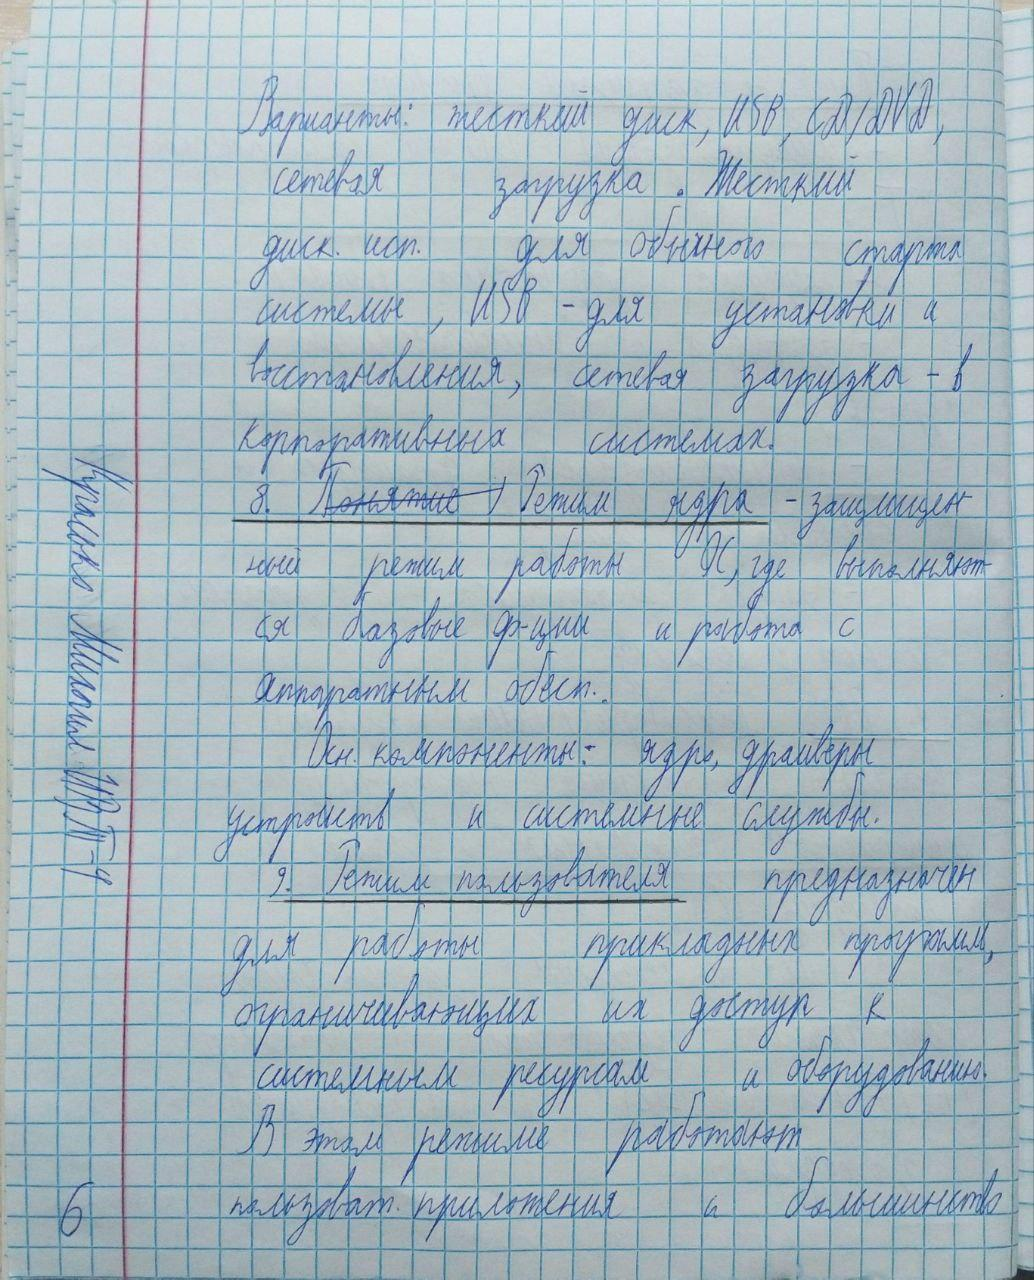 Варианты: жесткий диск, USB, CD/DVD,
сетевая загрузка. Жесткий
диск. исп. для обычного старта
системы, USB - для установки и
восстановления, сетевая загрузка - в
корпоративных системах.
8. Понятие Режим ядра - защищен
ный режим работы ПК, где выполняют-
ся базовые ф-ции и работа с
аппаратным обесп.
Осн. компоненты: ядро, драйверы
устройств и системные службы.
9. Режим пользователя предназначен
для работы прикладных программ,
ограничивающих их доступ к
системным ресурсам и оборудованию.
В этом режиме работают
пользоват. приложения и большинство
6